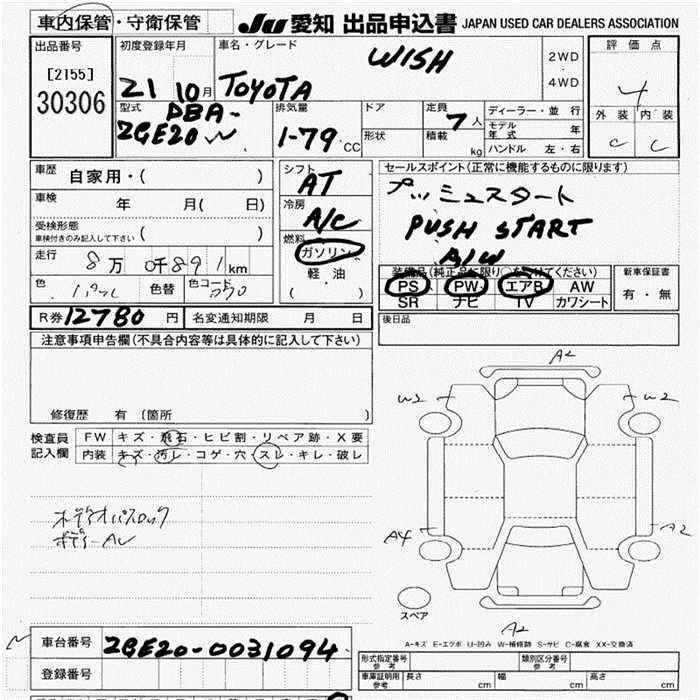 車内保管・守衛保管
JU 愛知 出品申込書 JAPAN USED CAR DEALERS ASSOCIATION
出品番号
[2155]
30306
初度登録年月
21 10月
車名・グレード
TOYOTA WISH
2WD
・
4WD
評価点
4
外装 内装
C C
型式
DBA-
ZGE20
排気量
1-79 CC
ドア
形状
定員
7人
積載
kg
ディーラー・並行
モデル年式 年
ハンドル 左・右
車歴
自家用・( )
車検 年 月( 日)
受検形態
車検付きのみ記入して下さい ( )
走行 8万 0千891km
色 パール 色替 色コード 070
シフト
AT
冷房
A/C
燃料
ガソリン
軽・油
( )
セールスポイント(正常に機能するものに限ります)
プッシュスタート
PUSH START
A/W
装備品(純正品に限り○をつけてください)
PS PW エアB AW
SR ナビ TV カワシート
新車保証書
有・無
R券 12780 円 名変通知期限 月 日
後日品
注意事項申告欄(不具合内容等は具体的に記入して下さい)
修復歴 有(箇所
検査員
記入欄
FW キズ・飛石・ヒビ割・リペア跡・X要
内装 キズ・汚レ・コゲ・穴・スレ・キレ・破レ
オーディオパスロック
ボデーAU
A2
W2
W2
A4
A2
スペア
A2
車台番号 ZGE20-0031094
登録番号
A-キズ E-エクボ U-凹み W-補修跡 S-サビ C-腐食 XX-交換済
形式指定番号
参考
類別区分番号
参考
車庫証明用
参考
長さ cm 幅 cm 高さ cm